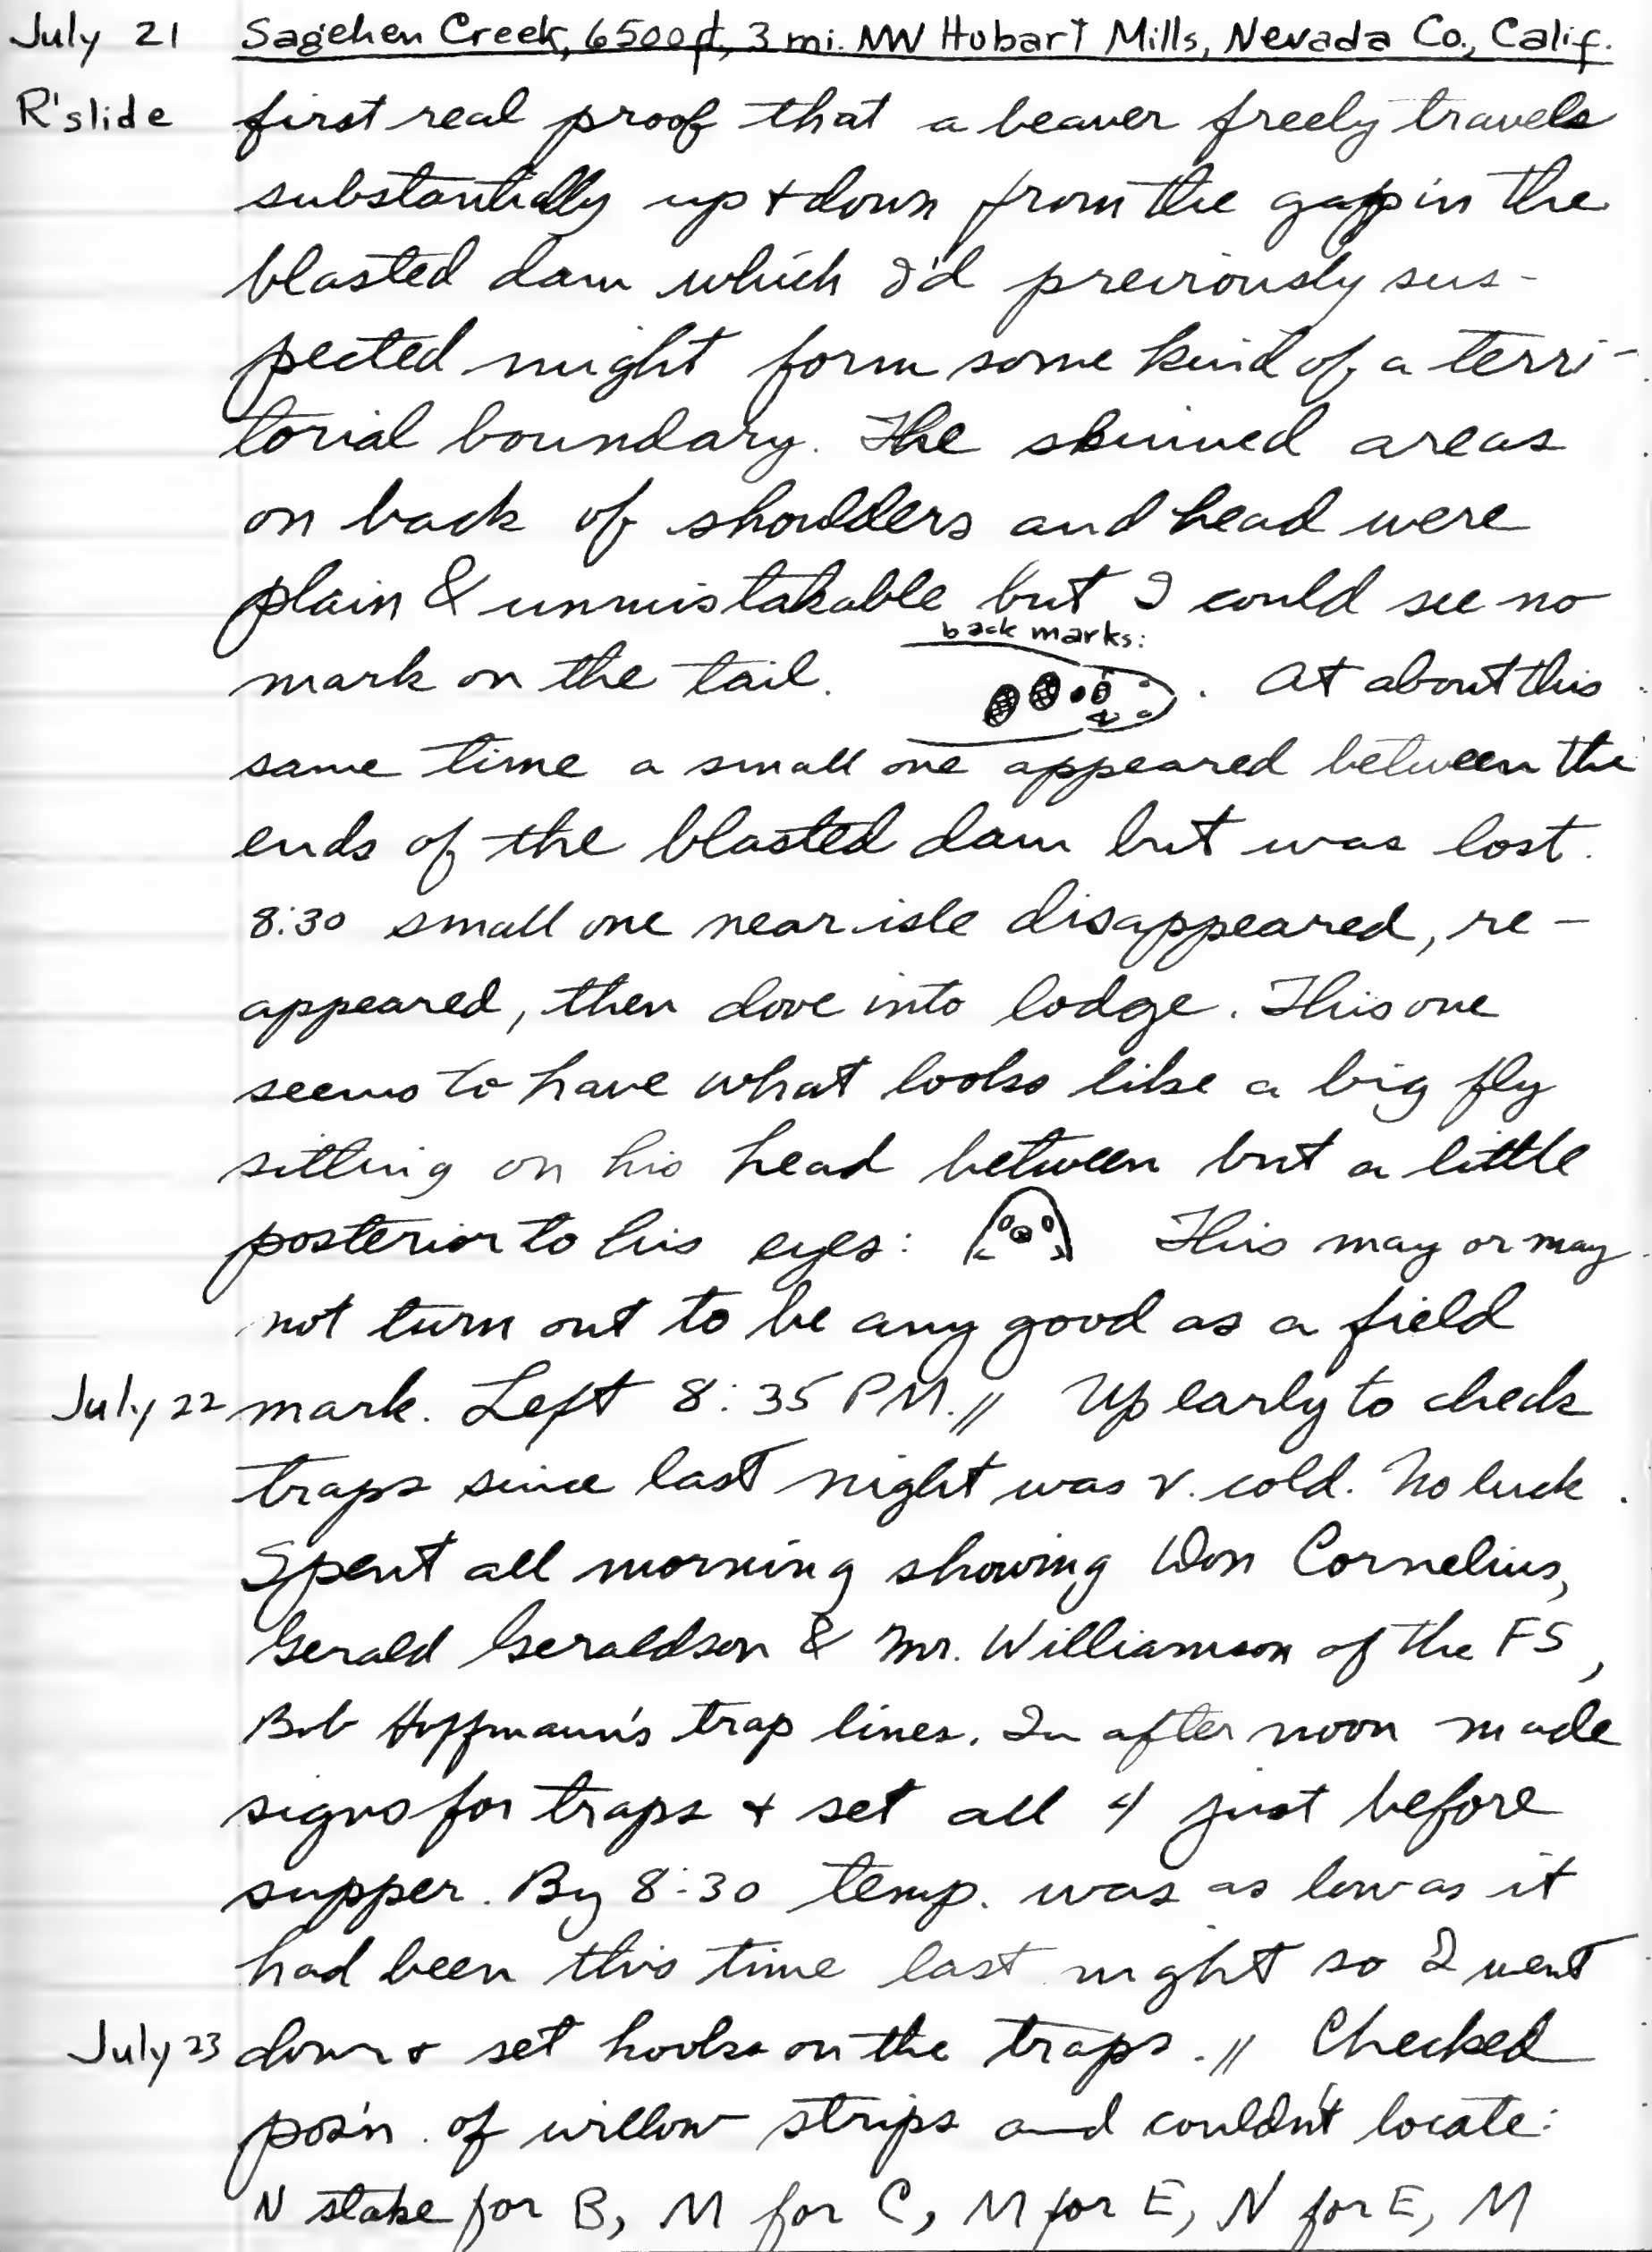 July 21 Sagehen Creek, 6500 ft, 3 mi. NW Hobart Mills, Nevada Co., Calif.
R'slide first real proof that a beaver freely travels
substantially up + down from the gap in the
blasted dam which I'd previously sus-
pected might form some kind of a terri-
torial boundary. The skinned areas
on back of shoulders and head were
plain & unmistakable but I could see no
back marks:
mark on the tail. . At about this
same time a small one appeared between the
ends of the blasted dam but was lost.
8:30 small one near isle disappeared, re-
appeared, then dove into lodge. This one
seems to have what looks like a big fly
sitting on his head between but a little
posterior to his eyes: This may or may
not turn out to be any good as a field
July 22 mark. Left 8:35 PM. // Up early to check
traps since last night was v. cold. No luck.
Spent all morning showing Don Cornelius,
Gerald Geraldson & Mr. Williamson of the FS,
Bob Hoffmann's trap lines. In afternoon made
signs for traps + set all 4 just before
supper. By 8:30 temp. was as low as it
had been this time last night so I went
July 23 down + set hooks on the traps. // Checked
pos'n. of willow strips and couldn't locate:
N stake for B, M for C, M for E, N for E, M